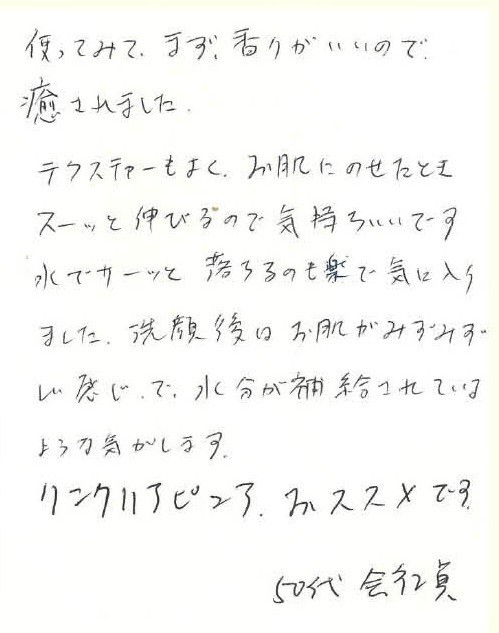 使ってみて、まず、香りがいいので、
癒されました.
テクスチャーもよく、お肌にのせたとき
スーッと伸びるので気持ちいいです
水でサーッと落ちるのも楽で気に入り
ました. 洗顔後は お肌がみずみず
しい感じ.で、水分が補給されている
ような気がします.
リンクルハアピンア、おススメです.
50代 会社員